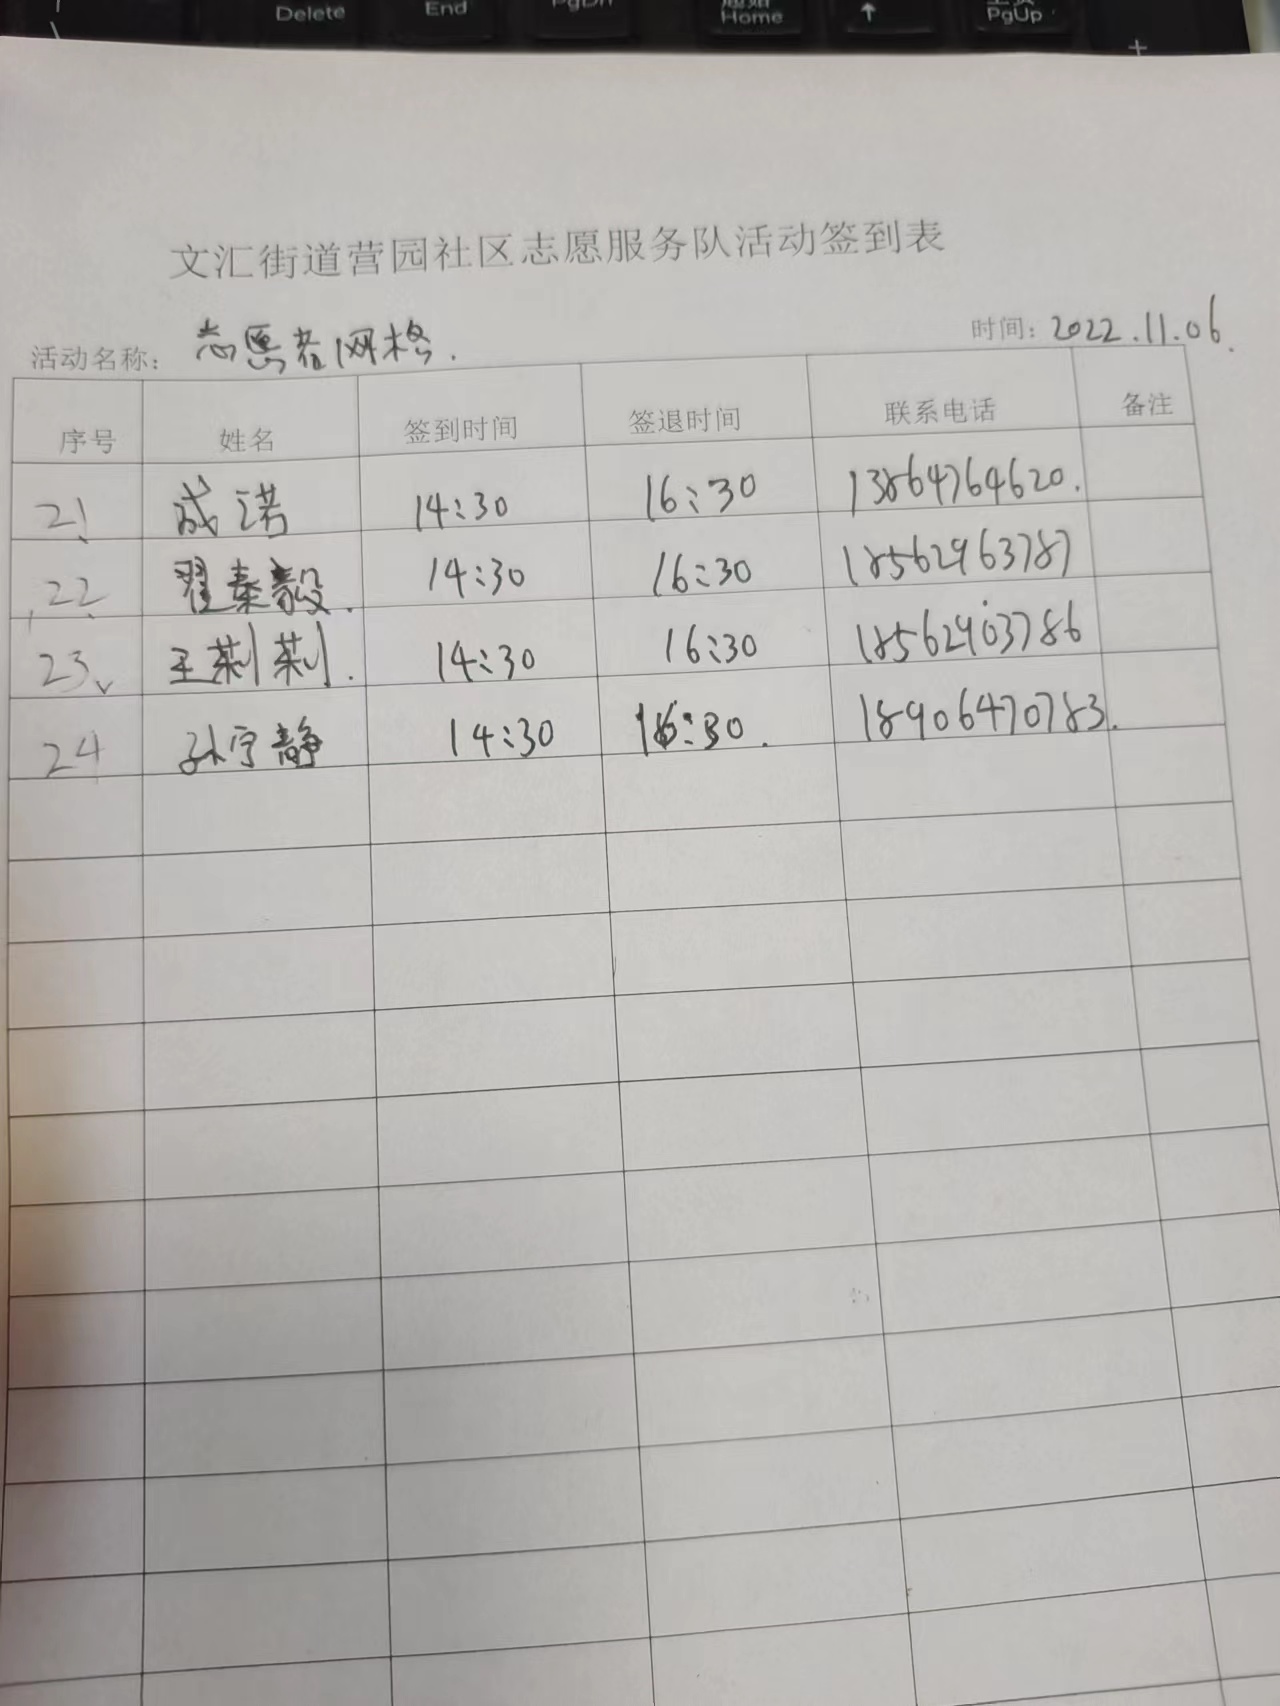 Delete End PgDn Home ↑ PgUp
+
文汇街道营园社区志愿服务队活动签到表
活动名称: 志愿者网格. 时间: 2022.11.06.
序号 姓名 签到时间 签退时间 联系电话 备注
21 成诺 14:30 16:30 13864764620.
22 翟秦毅. 14:30 16:30 18562963787
23 王莉莉. 14:30 16:30 18562903786
24 孙宇静 14:30 16:30. 18906470783.